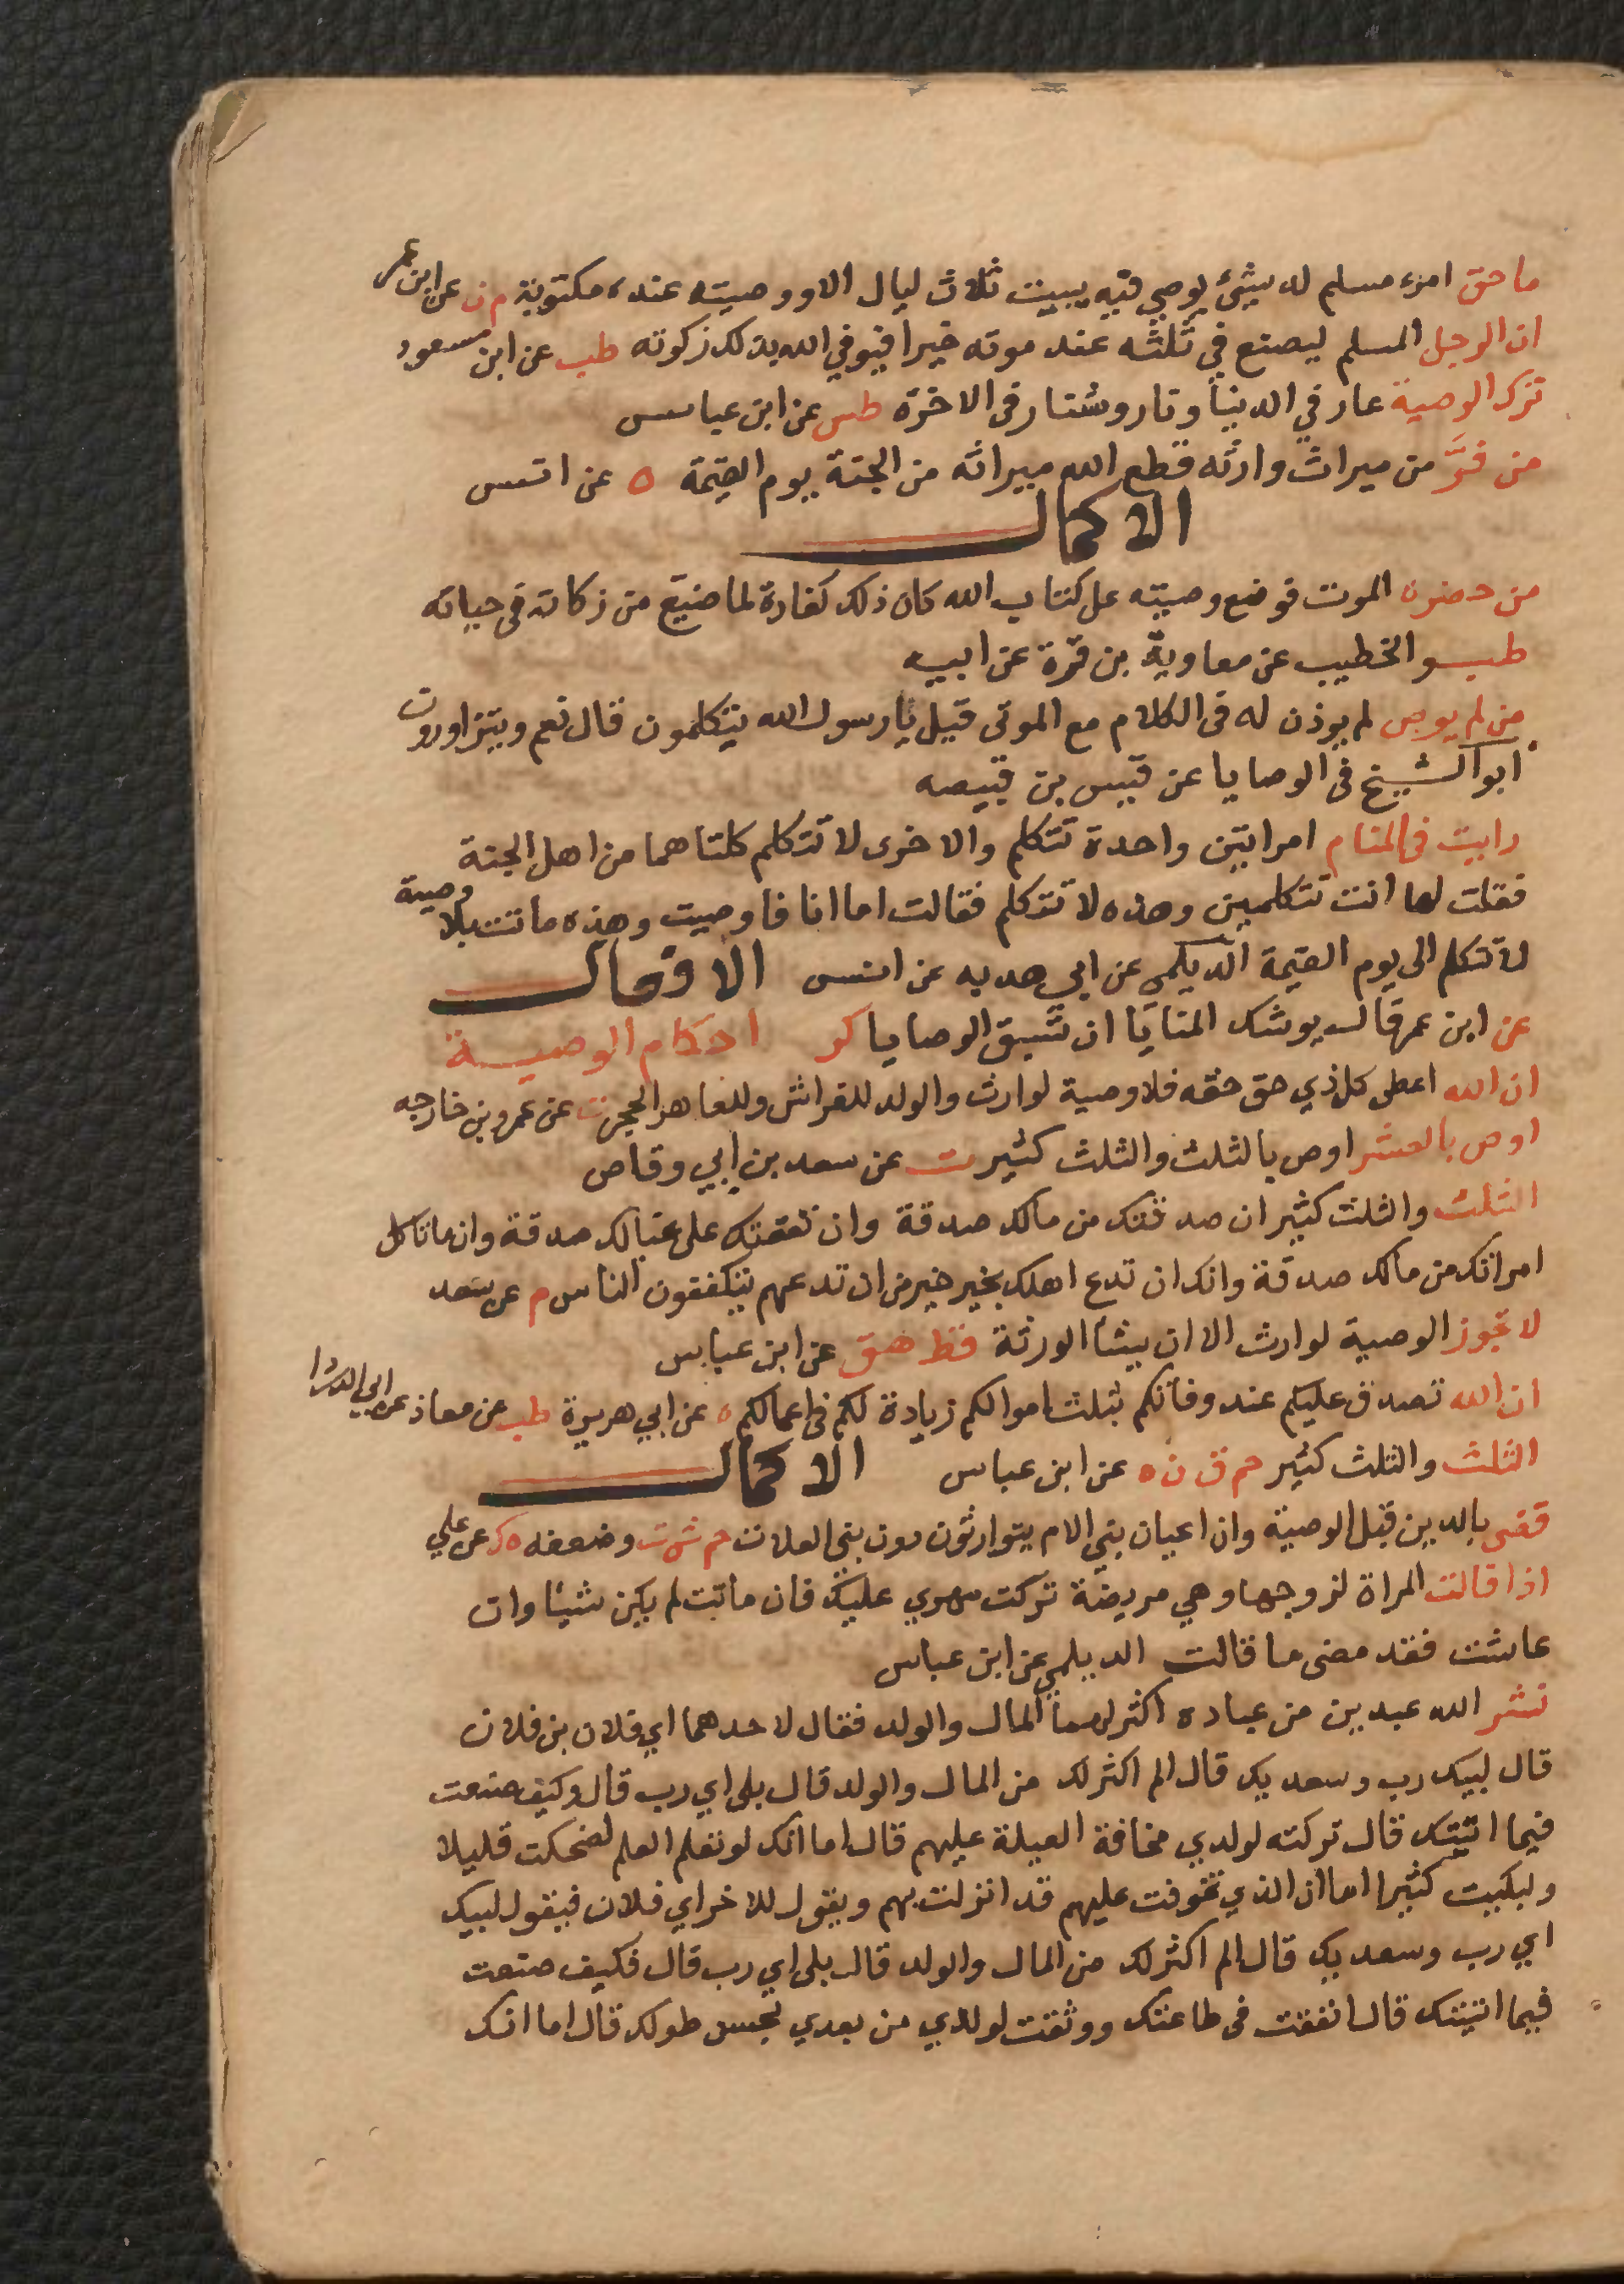 ما حق امرء مسلم له شيئ يوصي فيه يبيت ثلاث ليال الا ووصيته عنده مكتوبة م ن عن ابن عمر
ان الرجل المسلم ليصنع في ثلثه عند موته خيرا فيوفي الله بذلك زكوته طب عن ابن مسعود
ترك الوصية عار في الدنيا ونار وشنار في الاخرة طس عن ابن عباس
من فرَّ من ميراث وارثه قطع الله ميراثه من الجنة يوم القيمة ه عن انس
الاكمال
من حضره الموت فوضع وصيته على كتاب الله كان ذلك كفارة لما ضيع من زكاته في حياته
طب والخطيب عن معاوية بن قرة عن ابيه
من لم يوص لم يوذن له في الكلام مع الموتى قيل يا رسول الله يتكلمون قال نعم ويتزاورون
ابو الشيخ في الوصايا عن قيس بن قبيصه
رايت في المنام امراتين واحدة تتكلم والاخرى لا تتكلم كلتاهما من اهل الجنة
فقلت لها انت تتكلمين وهذه لا تتكلم فقالت اما انا فاوصيت وهذه ماتت بلا وصية
لا تتكلم الى يوم القيمة الديلمي عن ابي هدبه عن انس الافعال
عن ابن عمر قال يوشك المنايا ان تسبق الوصايا كر احكام الوصية
ان الله اعطى كل ذي حق حقه فلا وصية لوارث والولد للفراش وللعاهر الحجر ت عن عمرو بن خارجه
اوص بالعشر اوص بالثلث والثلث كثير ت عن سعد بن ابي وقاص
الثلث والثلث كثير ان صدقتك من مالك صدقة وان نفقتك على عيالك صدقة وان ما تاكل
امراتك من مالك صدقة وانك ان تدع اهلك بخير خير من ان تدعهم يتكففون الناس م عن سعد
لا تجوز الوصية لوارث الا ان يشأ الورثة قط هق عن ابن عباس
ان الله تصدق عليكم عند وفاتكم بثلث اموالكم زيادة لكم في اعمالكم ه عن ابي هريرة طب عن معاذ عن ابي الدردا
الثلث والثلث كثير حم ق ن ه عن ابن عباس الاكمال
قضى بالدين قبل الوصية وان اعيان بني الام يتوارثون دون بني العلات حم ش ت وضعفه ه ك عن علي
اذا قالت المراة لزوجها وهي مريضة تركت مهري عليك فان ماتت لم يكن شيئا وان
عاشت فقد مضى ما قالت الديلمي عن ابن عباس
نشر الله عبدين من عباده اكثر لهما المال والولد فقال لاحدهما اي فلان بن فلان
قال لبيك رب وسعديك قال الم اكثر لك من المال والولد قال بلى اي رب قال وكيف صنعت
فيما اتيتك قال تركته لولدي مخافة العيلة عليهم قال اما انك لو تعلم العلم لضحكت قليلا
ولبكيت كثيرا اما ان الذي تخوفت عليهم قد انزلت بهم ويقول للاخر اي فلان فيقول لبيك
اي رب وسعديك قال الم اكثر لك من المال والولد قال بلى اي رب قال فكيف صنعت
فيما اتيتك قال انفقت في طاعتك ووثقت لولدي من بعدي بحسن طولك قال اما انك